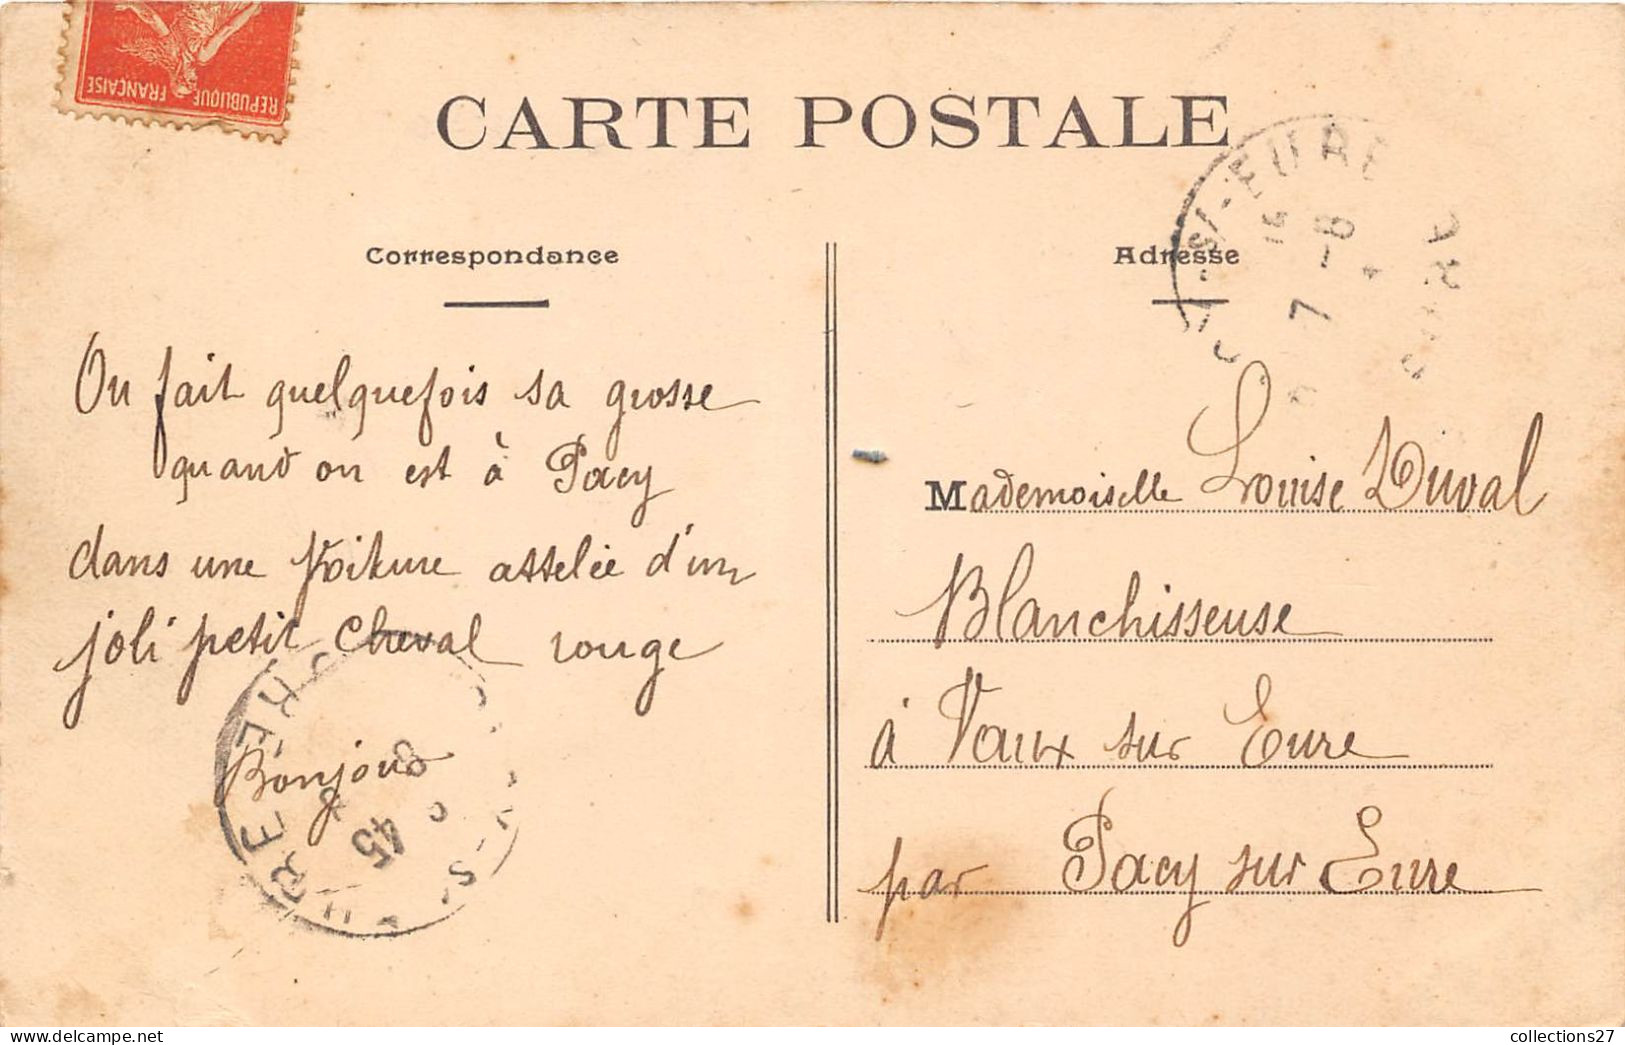 REPUBLIQUE FRANÇAISE
CARTE POSTALE
Correspondance
On fait quelquefois sa grosse
quand on est à Pacy
dans une Voiture attelée d'un
joli petit Cheval rouge
Bonjour
Adresse
Mademoiselle Louise Duval
Blanchisseuse
à Vaux sur Eure
par Pacy sur Eure
S/-EURE
7 -8
45
collections27